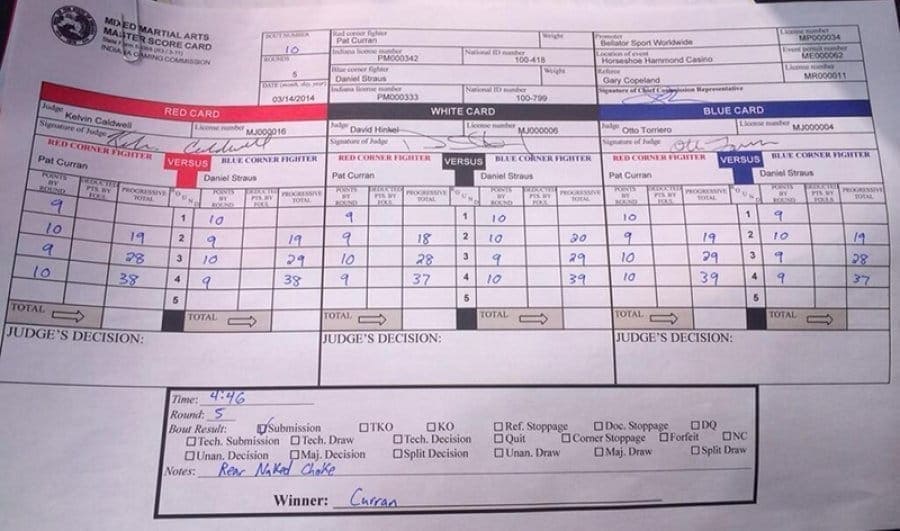 MIXED MARTIAL ARTS
MASTER SCORE CARD
INDIANA GAMING COMMISSION
BOUT NUMBER
10
ROUNDS
5
DATE (month, day, year)
03/14/2014
Red corner fighter
Pat Curran
Weight
Indiana license number
PM000342
National ID number
100-418
Blue corner fighter
Daniel Straus
Weight
Indiana license number
PM000333
National ID number
100-799
Promoter
Bellator Sport Worldwide
License number
MP000034
Location of event
Horseshoe Hammond Casino
Event permit number
ME000062
Referee
Gary Copeland
License number
MR000011
Signature of Chief Commission Representative
RED CARD
Judge
Kelvin Caldwell
License number
MJ000016
Signature of Judge
Kelvin Caldwell
RED CORNER FIGHTER VERSUS BLUE CORNER FIGHTER
Pat Curran Daniel Straus
POINTS BY ROUND DEDUCTED PTS. BY FOUL PROGRESSIVE TOTAL ROUND POINTS BY ROUND DEDUCTED PTS. BY FOUL PROGRESSIVE TOTAL
9 1 10
10 19 2 9 19
9 28 3 10 29
10 38 4 9 38
5
TOTAL TOTAL
JUDGE'S DECISION:
WHITE CARD
Judge
David Hinkel
License number
MJ000006
Signature of Judge
RED CORNER FIGHTER VERSUS BLUE CORNER FIGHTER
Pat Curran Daniel Straus
POINTS BY ROUND DEDUCTED PTS. BY FOUL PROGRESSIVE TOTAL ROUND POINTS BY ROUND DEDUCTED PTS. BY FOUL PROGRESSIVE TOTAL
9 1 10
9 18 2 10 20
10 28 3 9 29
9 37 4 10 39
5
TOTAL TOTAL
JUDGE'S DECISION:
BLUE CARD
Judge
Otto Torriero
License number
MJ000004
Signature of Judge
RED CORNER FIGHTER VERSUS BLUE CORNER FIGHTER
Pat Curran Daniel Straus
POINTS BY ROUND DEDUCTED PTS. BY FOUL PROGRESSIVE TOTAL ROUND POINTS BY ROUND DEDUCTED PTS. BY FOULS PROGRESSIVE TOTAL
10 1 9
9 19 2 10 19
10 29 3 9 28
10 39 4 9 37
5
TOTAL TOTAL
JUDGE'S DECISION:
Time: 4:46
Round: 5
Bout Result: ☑Submission ☐TKO ☐KO ☐Ref. Stoppage ☐Doc. Stoppage ☐DQ
☐Tech. Submission ☐Tech. Draw ☐Tech. Decision ☐Quit ☐Corner Stoppage ☐Forfeit ☐NC
☐Unan. Decision ☐Maj. Decision ☐Split Decision ☐Unan. Draw ☐Maj. Draw ☐Split Draw
Notes: Rear Naked Choke
Winner: Curran